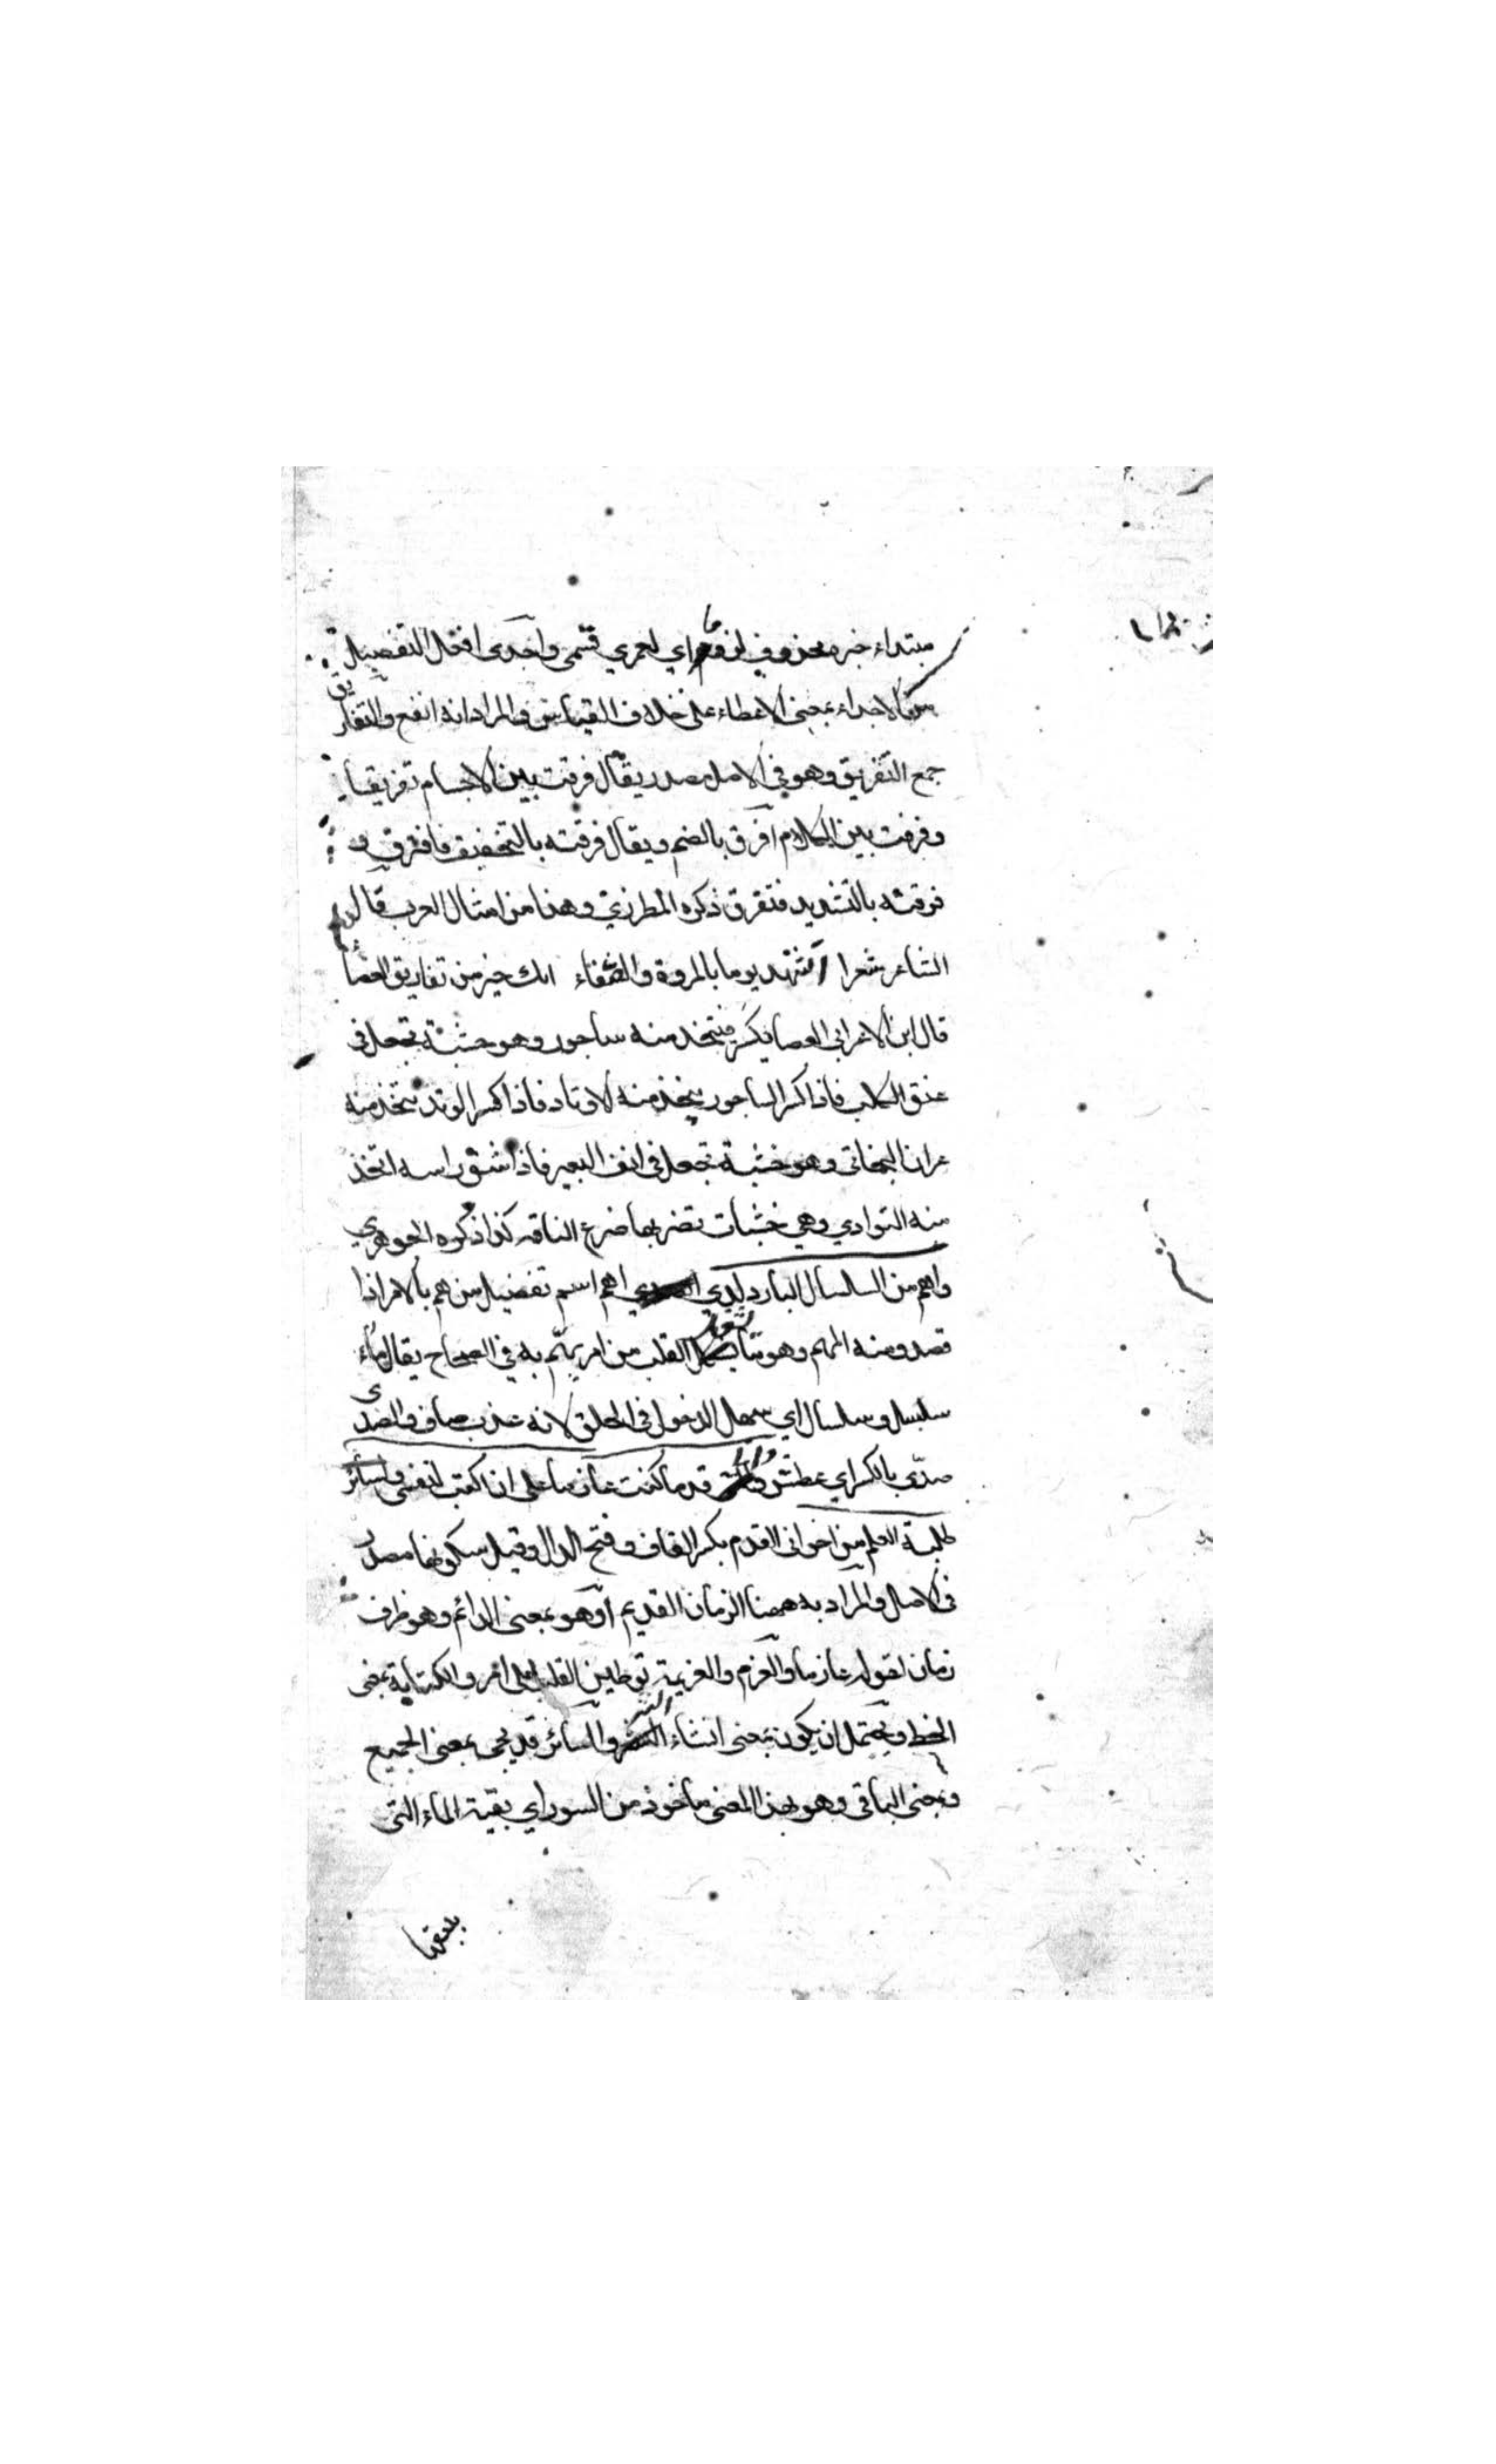 مبتداء خبره محذوف لزوما اي لعمري قسمي واجدى افعل التفضيل
من الاجداء بمعنى الاعطاء على خلاف القياس والمراد انه انفع والتفاريق
جمع التفريق وهو في الاصل مصدر يقال فرقت بين الاجسام تفريقا
وفرقت بين الكلام افرق بالضم ويقال فرقته بالتخفيف فافترق و
فرقته بالتشديد فتفرق ذكره المطرزي وهذا من امثال العرب قال
الشاعر شعرا اشهد يوما بالمروة والصفاء انك خير من تفاريق العصا
قال ابن الاعرابي العصا يكسر فيتخذ منه ساجور وهو خشبة تجعل في
عنق الكلب فاذا كسر الساجور يتخذ منه الاوتاد فاذا كسر الوتد يتخذ منه
عران البخاتي وهو خشبة تجعل في انف البعير فاذا شق راسه اتخذ
منه التوادي وهي خشبات تصر بها ضرع الناقة كذا ذكره الجوهري
واهم من السلسال البارد لدي اهم اسم تفضيل من هم بالامر اذا
قصد ومنه المهم وهو القلب من امر يهتم به في الصحاح يقال ماء
سلسل وسلسال اي سهل الدخول في الحلق لانه عذب صاف والصدى
صدي بالكسر اي عطش قدما كنت عازما على ان اكتب لنفسي ولسائر
طلبة العلم من اخواني القدم بكسر القاف وفتح الدال وقيل سكونها مصدر
في الاصل والمراد به ههنا الزمان القديم او هو بمعنى الدائم وهو ظرف
زمان لقوله عازما والعزم والعزيمة توطين القلب على امر والكتابة بمعنى
الخط ويحتمل ان يكون بمعنى انشاء والسائر قد يجيء بمعنى الجميع
وبمعنى الباقي وهو بهذا المعنى ماخوذ من السور اي بقية الماء التي
يبقيها